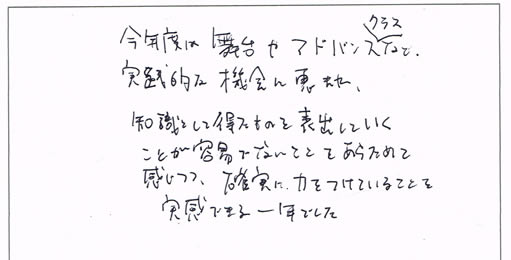 今年度は舞台やアドバンスクラスなど、
実践的な機会に恵まれ、
知識として得たものを表出していく
ことが容易でないことをあらためて
感じつつ、確実に力をつけていることを
実感できる一年でした